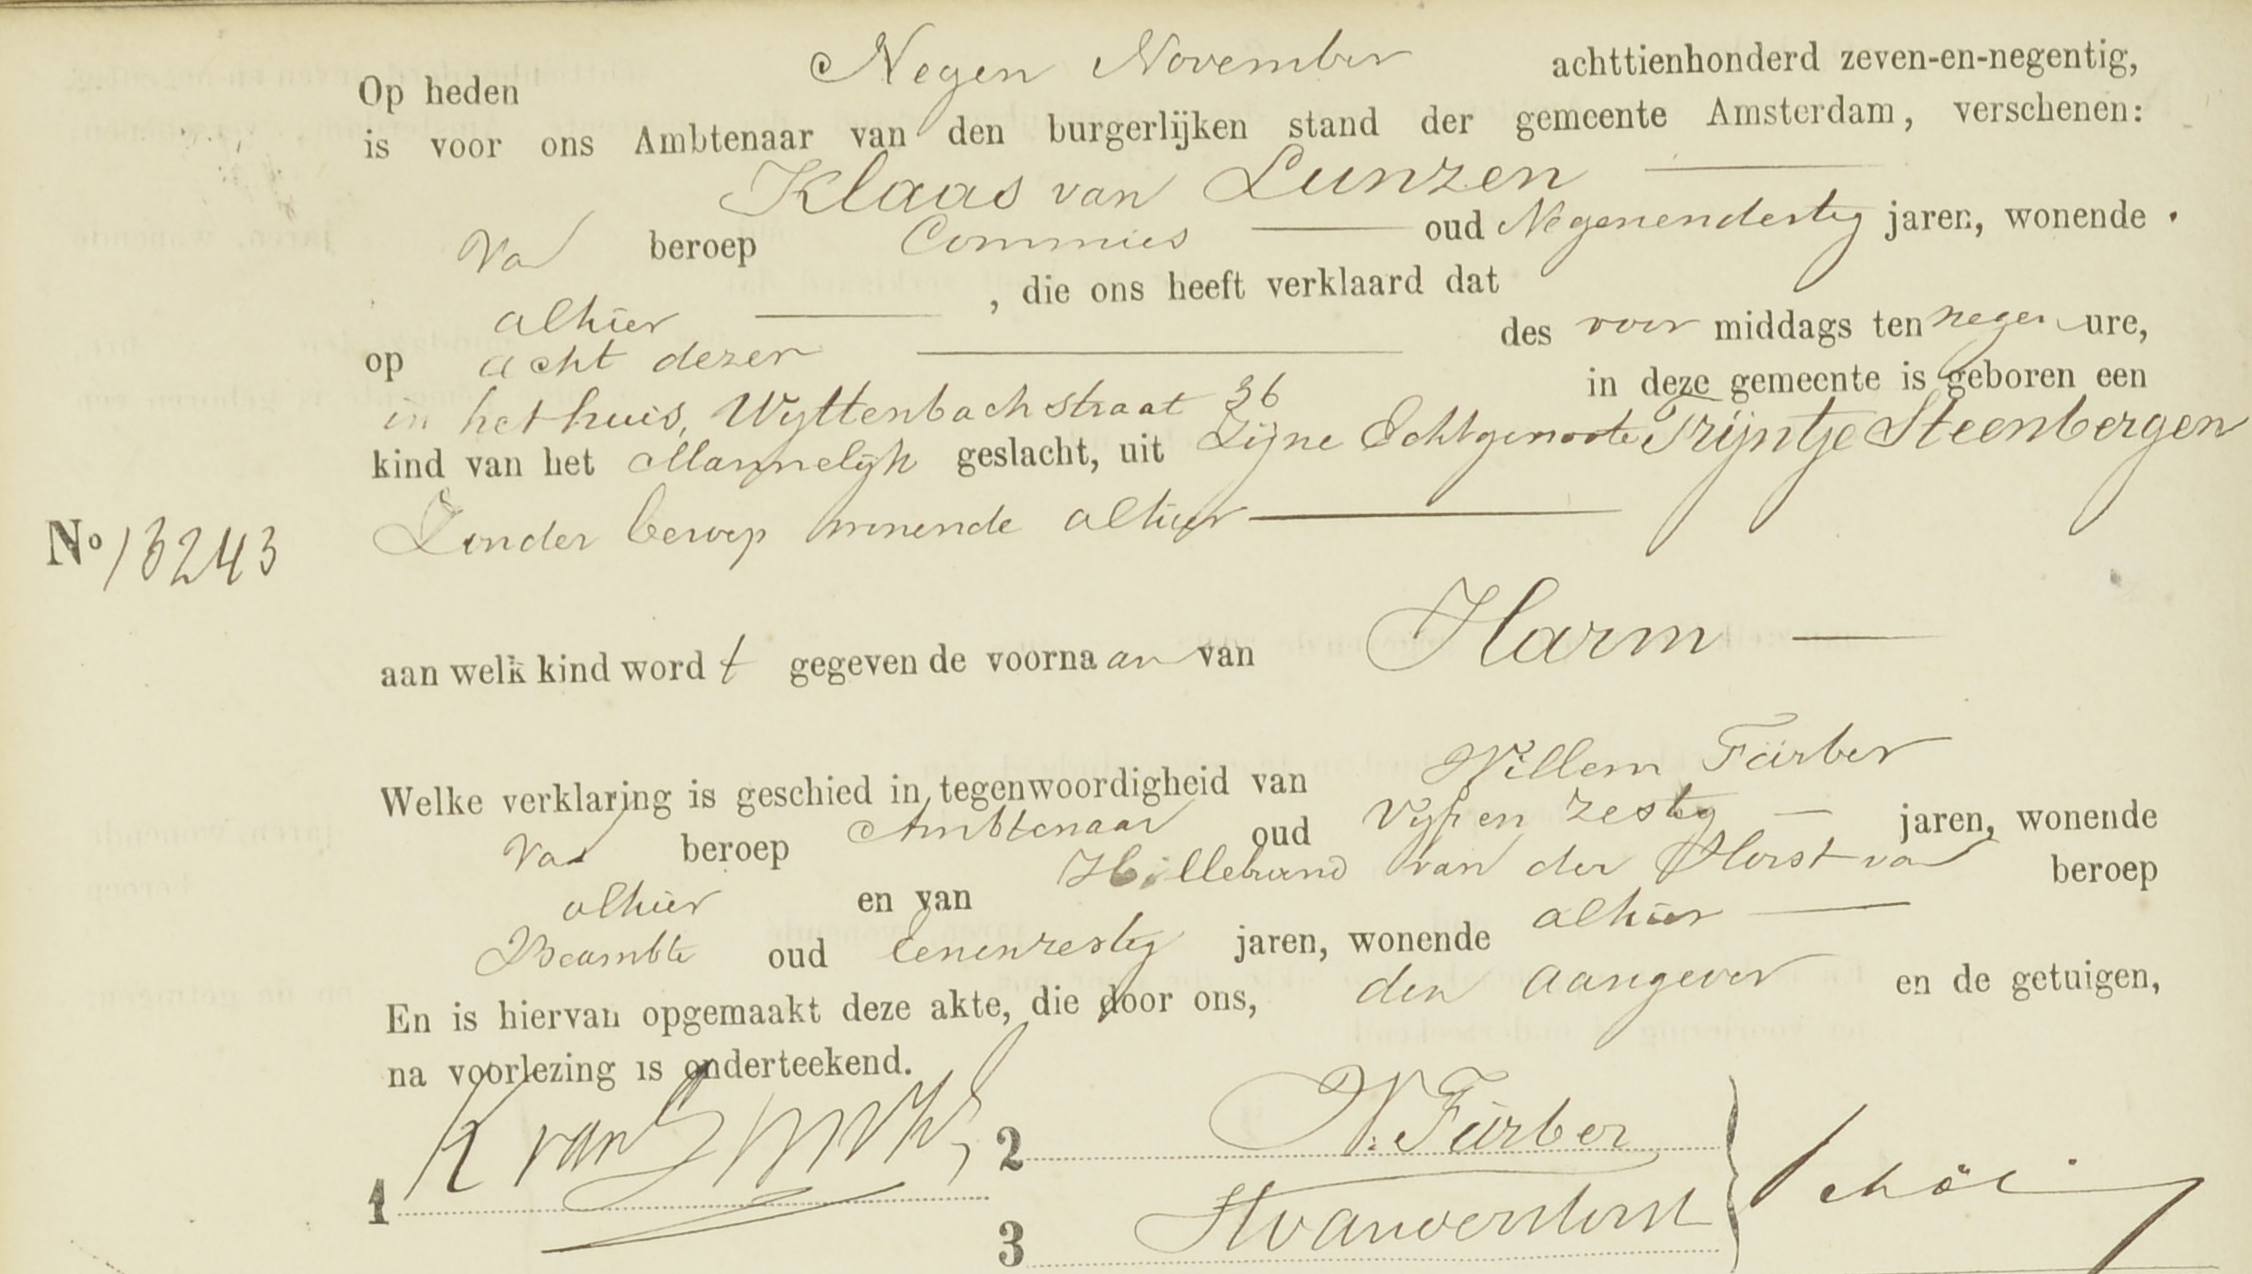 Op heden Negen November achttienhonderd zeven-en-negentig,
is voor ons Ambtenaar van den burgerlijken stand der gemeente Amsterdam, verschenen:
Klaas van Lunzen
van beroep Commies oud Negenendertig jaren, wonende
alhier, die ons heeft verklaard dat
op acht dezer des voor middags ten negen ure,
in het huis, Wyttenbachstraat 36 in deze gemeente is geboren een
kind van het Mannelijk geslacht, uit Zijne Echtgenoote Trijntje Steenbergen
Zonder beroep wonende alhier
No 13243
aan welk kind wordt gegeven de voornaam van Harm
Welke verklaring is geschied in tegenwoordigheid van Willem Fürber
van beroep Ambtenaar oud Vijf en zestig jaren, wonende
alhier en van Hillebrand van der Horst van beroep
Beambte oud Eenenzestig jaren, wonende alhier
En is hiervan opgemaakt deze akte, die door ons, den aangever en de getuigen,
na voorlezing is onderteekend.
1 K van
2 W. Fürber
3 H van der Horst